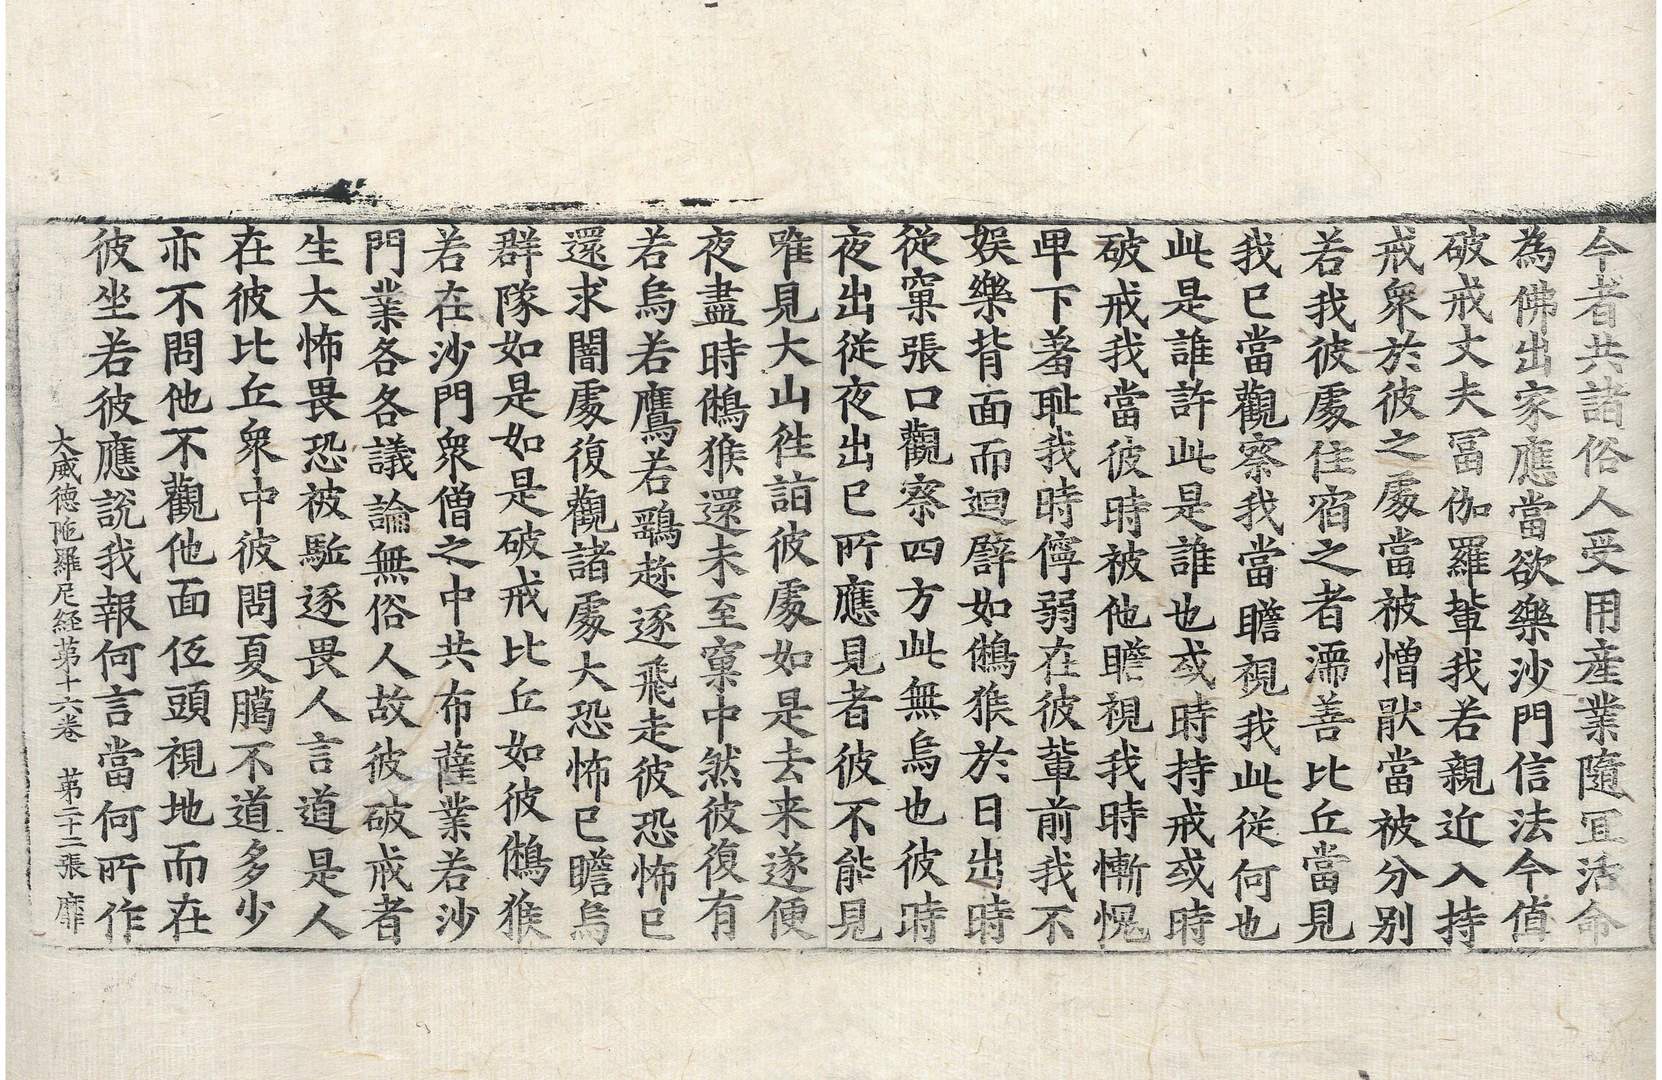 今者共諸俗人受用産業隨冝活命
為佛出家應當欲樂沙門信法今值
破戒丈夫冨伽羅輩我若親近入持
戒衆於彼之處當被憎猒當被分別
若我彼處住宿之者濡善比丘當見
我已當觀察我當瞻視我此従何也
此是誰許此是誰也或時持戒或時
破戒我當彼時被他瞻視我時慚愧
卑下羞耻我時儜弱在彼輩前我不
娱樂背面而迴譬如鵂猴於日出時
従窠張口觀察四方此無烏也彼時
夜出従夜出已所應見者彼不能見
唯見大山往詣彼處如是去来遂便
夜盡時鵂猴還未至窠中然彼復有
若烏若鷹若鷂趂逐飛走彼恐怖已
還求闇處復觀諸處大恐怖已瞻烏
群隊如是如是破戒比丘如彼鵂猴
若在沙門衆僧之中共布薩業若沙
門業各各議論無俗人故彼破戒者
生大怖畏恐被駈逐畏人言道是人
在彼比丘衆中彼問夏臈不道多少
亦不問他不觀他面伍頭視地而在
彼坐若彼應說我報何言當何所作
大威德陁羅尼経第十六卷 第二十二張 靡